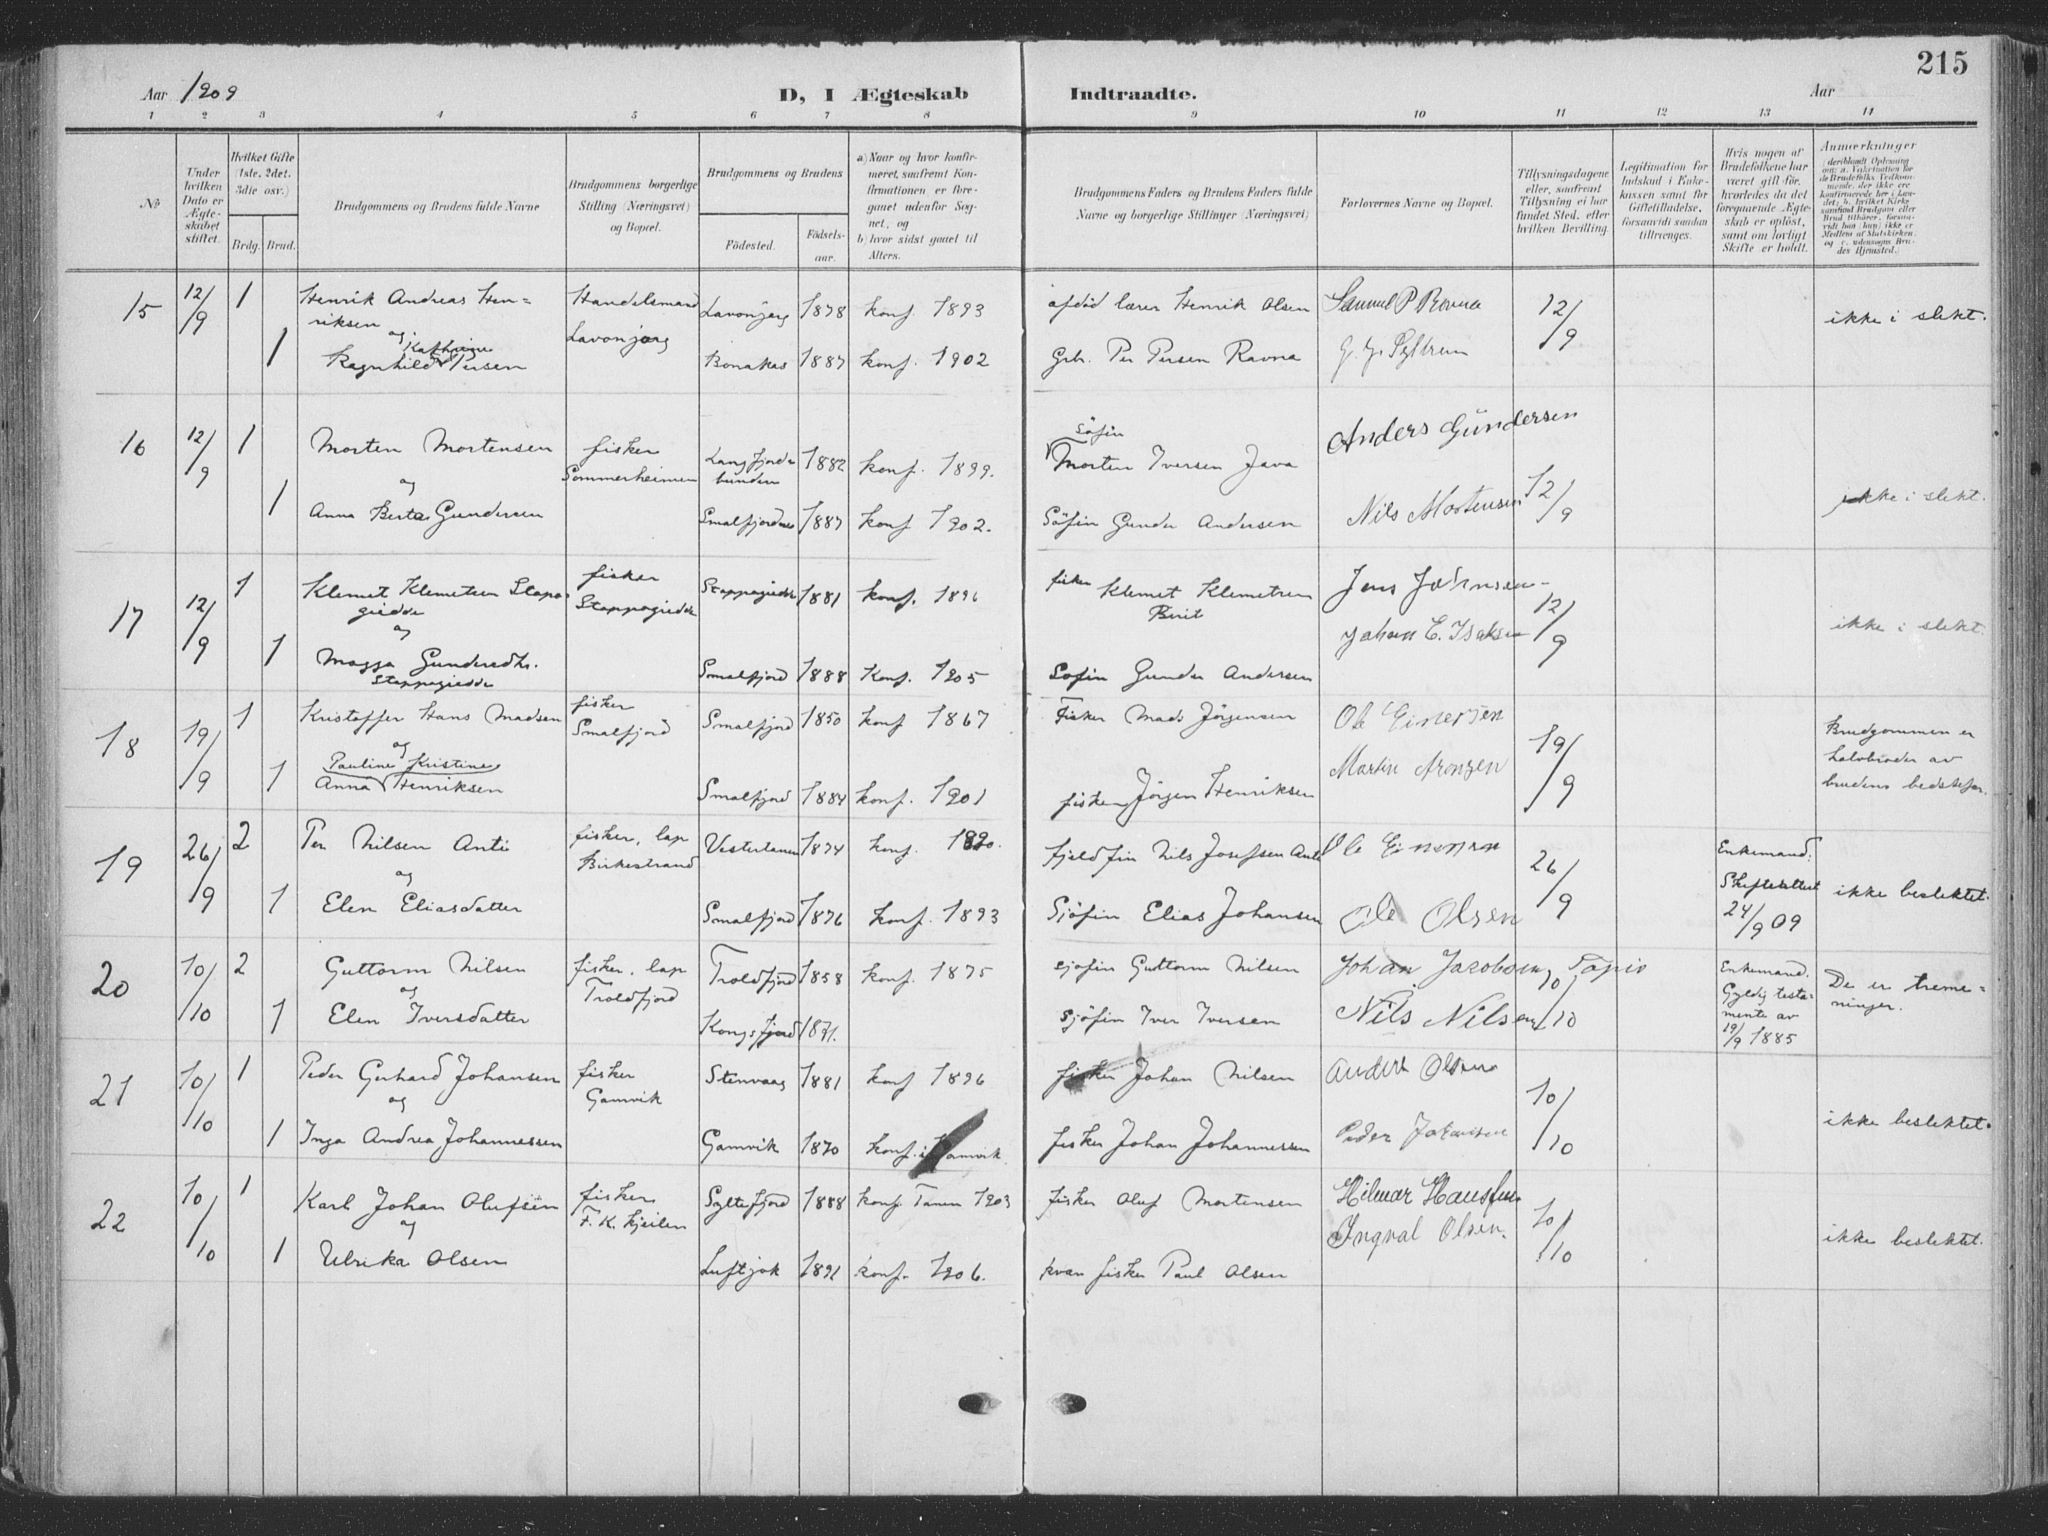 215
Aar 1909
D, I Ægteskab Indtraadte.
Aar
1 2 3 4 5 6 7 8 9 10 11 12 13 14
No
Under hvilken Dato er Ægteskabet stiftet.
Hvilket Gifte (1ste, 2det, 3die osv.)
Brdg. Brud.
Brudgommens og Brudens fulde Navne
Brudgommens borgerlige Stilling (Næringsvei) og Bopæl.
Brudgommens og Brudens
Födested. Födselsaar.
a) Naar og hvor konfirmeret, saafremt Konfirmationen er foregaaet udenfor Sognet, og
b) hvor sidst gaaet til Alters.
Brudgommens Faders og Brudens Faders fulde Navne og borgerlige Stillinger (Næringsvei)
Forlovernes Navne og Bopæl.
Tillysningsdagene eller, saafremt Tillysning ei har fundet Sted, efter hvilken Bevilling.
Legitimation for Indskud i Enkekassen samt for Giftetilladelse, forsaavidt saadan tiltrænges.
Hvis nogen af Brudefolkene har været gift för, hvorledes da det foregaaende Ægteskab er oplöst, samt om lovligt Skifte er holdt.
Anmerkninger
15 12/9 1 Henrik Andreas Henriksen Handelsmand Lavonjarg Lavonjarg 1878 konf. 1893 afdöd lærer Henrik Olsen Samuel P Ravna 12/9 ikke i slekt.
og
1 Ragnhild Kathrine Persen Bonakas 1887 konf. 1902 Grb. Per Persen Ravna
16 12/9 1 Morten Mortensen fisker Sommerheimen Langfjordbunden 1882 konf. 1899. Söfin Morten Iversen Java Anders Gündersen 12/9 ikke i slekt.
og
1 Anna Berta Gundersen Smalfjordnes 1887 konf 1902. Söfin Gunder Andersen Nils Mortensen
17 12/9 1 Klemet Klemetsen Stapogiedde fisker Stappogiedde Stappogiedde 1881 konf. 1896 fisker Klemet Klemetsen Berit Jens Johnsen 12/9 ikke i slekt.
og
1 Magga Gundersdtr. Stappogiedde Smalfjord 1888 Konf. 1905 Sofin Gunder Andersen Johan E. Isaksen
18 19/9 1 Kristoffer Hans Madsen fisker Smalfjord Smalfjord 1850 konf 1867 Fisker Mads Jörgensen Ole Einersen 19/9 Brudgommen er halvbroder av brudens bedstefar.
og
1 Anna Pauline Kristine Henriksen Smalfjord 1884 konf. 1901 fisker Jörgen Henriksen Martin Aronsen
19 26/9 2 Per Nilsen Anti fisker, lap Birkestrand Vestertanen 1874 konf. 1890. fjeldfin Nils Josefsen Anti Ole Einersen 26/9 Enkemand. Skifteattest 24/9 09 ikke beslektet.
og
1 Elen Eliasdatter Smalfjord 1876 konf. 1893 Sjöfin Elias Johansen Ole Olsen
20 10/10 2 Guttorm Nilsen fisker, lap Troldfjord Troldfjord 1858 konf. 1875 sjöfin Guttorm Nilsen Johan Jacobsen Tapio 10/10 Enkemand. Gyldig testamente av 19/9 1885 De er tremeninger.
og
1 Elen Iversdatter Kongsfjord 1871. Sjöfin Iver Iversen Nils Nilsen
21 10/10 1 Peder Gerhard Johansen fisker Gamvik Stenvaag 1881 konf 1896 fisker Johan Nilsen Anders Olsen 10/10 ikke beslektet.
og
1 Inga Andrea Johannessen Gamvik 1870 konf. i Gamvik. fisker Johan Johannessen Peder Johansen
22 10/10 1 Karl Johan Olufsen fisker F. K. kjeilen Syltefjord 1888 konf. Tanen 1903 fisker Oluf Mortensen Hilmar 10/10 ikke beslektet.
og
1 Ulrika Olsen Luftjok 1891 konf. 1906. kvæn fisker Paul Olsen Ingval Olsen.